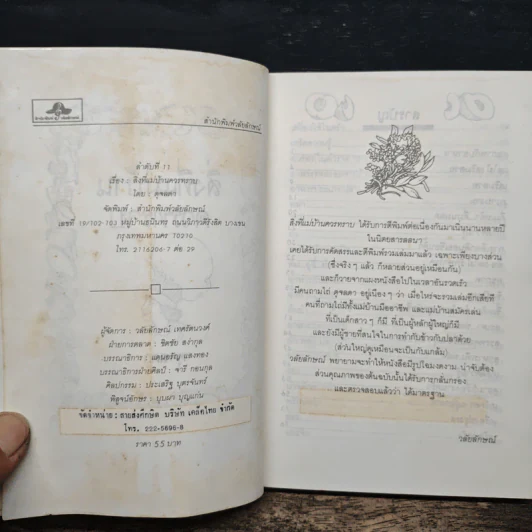 สำนักพิมพ์วลัยลักษณ์
ลำดับที่ 11
เรื่อง : สิ่งที่แม่บ้านควรทราบ
โดย : ดุจลดา
จัดพิมพ์ : สำนักพิมพ์วลัยลักษณ์
เลขที่ 19/102-103 หมู่บ้านธนินทร ถนนวิภาวดีรังสิต บางเขน
กรุงเทพมหานคร 10210
โทร. 2116206-7 ต่อ 29
ผู้จัดการ : วลัยลักษณ์ เทศรัตนวงศ์
ฝ่ายการตลาด : ชิตชัย สง่ากุล
บรรณาธิการ : แดนอรัญ แสงทอง
บรรณาธิการฝ่ายศิลป์ : จารี กอนกุล
ศิลปกรรม : ประเสริฐ บุตรจันทร์
พิสูจน์อักษร : บุบผา บุญแก่น
จัดจำหน่าย : สายส่งศึกษิต บริษัท เคล็ดไทย จำกัด
โทร. 222-5696-8
ราคา 55 บาท
สารบัญ
สิ่งที่แม่บ้านควรทราบ ได้รับการตีพิมพ์ต่อเนื่องกันมาเนิ่นนานหลายปี
ในนิตยสารลลนา
เคยได้รับการคัดสรรและตีพิมพ์รวมเล่มมาแล้ว เฉพาะเพียงบางส่วน
(ซึ่งจริง ๆ ก็หลายส่วนอยู่เหมือนกัน)
และก็วายจากแผงหนังสือไปในเวลาอันรวดเร็ว
มีคนถามไถ่ ดุจลดา อยู่เนือง ๆ ว่า เมื่อไหร่จะรวมเล่มอีกเสียที
คนที่ถามไถ่มีทั้งแม่บ้านมืออาชีพ และแม่บ้านสมัครเล่น
ที่เป็นเด็กสาว ๆ ก็มี ที่เป็นผู้หลักผู้ใหญ่ก็มี
และยังมีผู้ชายที่สนใจในการทำกับข้าวกับปลาด้วย
(ส่วนใหญ่ดูเหมือนจะเป็นกับแกล้ม)
วลัยลักษณ์ พยายามจะทำให้หนังสือมีรูปโฉมงดงาม น่าจับต้อง
ส่วนคุณภาพของต้นฉบับนั้นได้รับการกลั่นกรอง
และตรวจสอบแล้วว่า ได้มาตรฐาน
วลัยลักษณ์